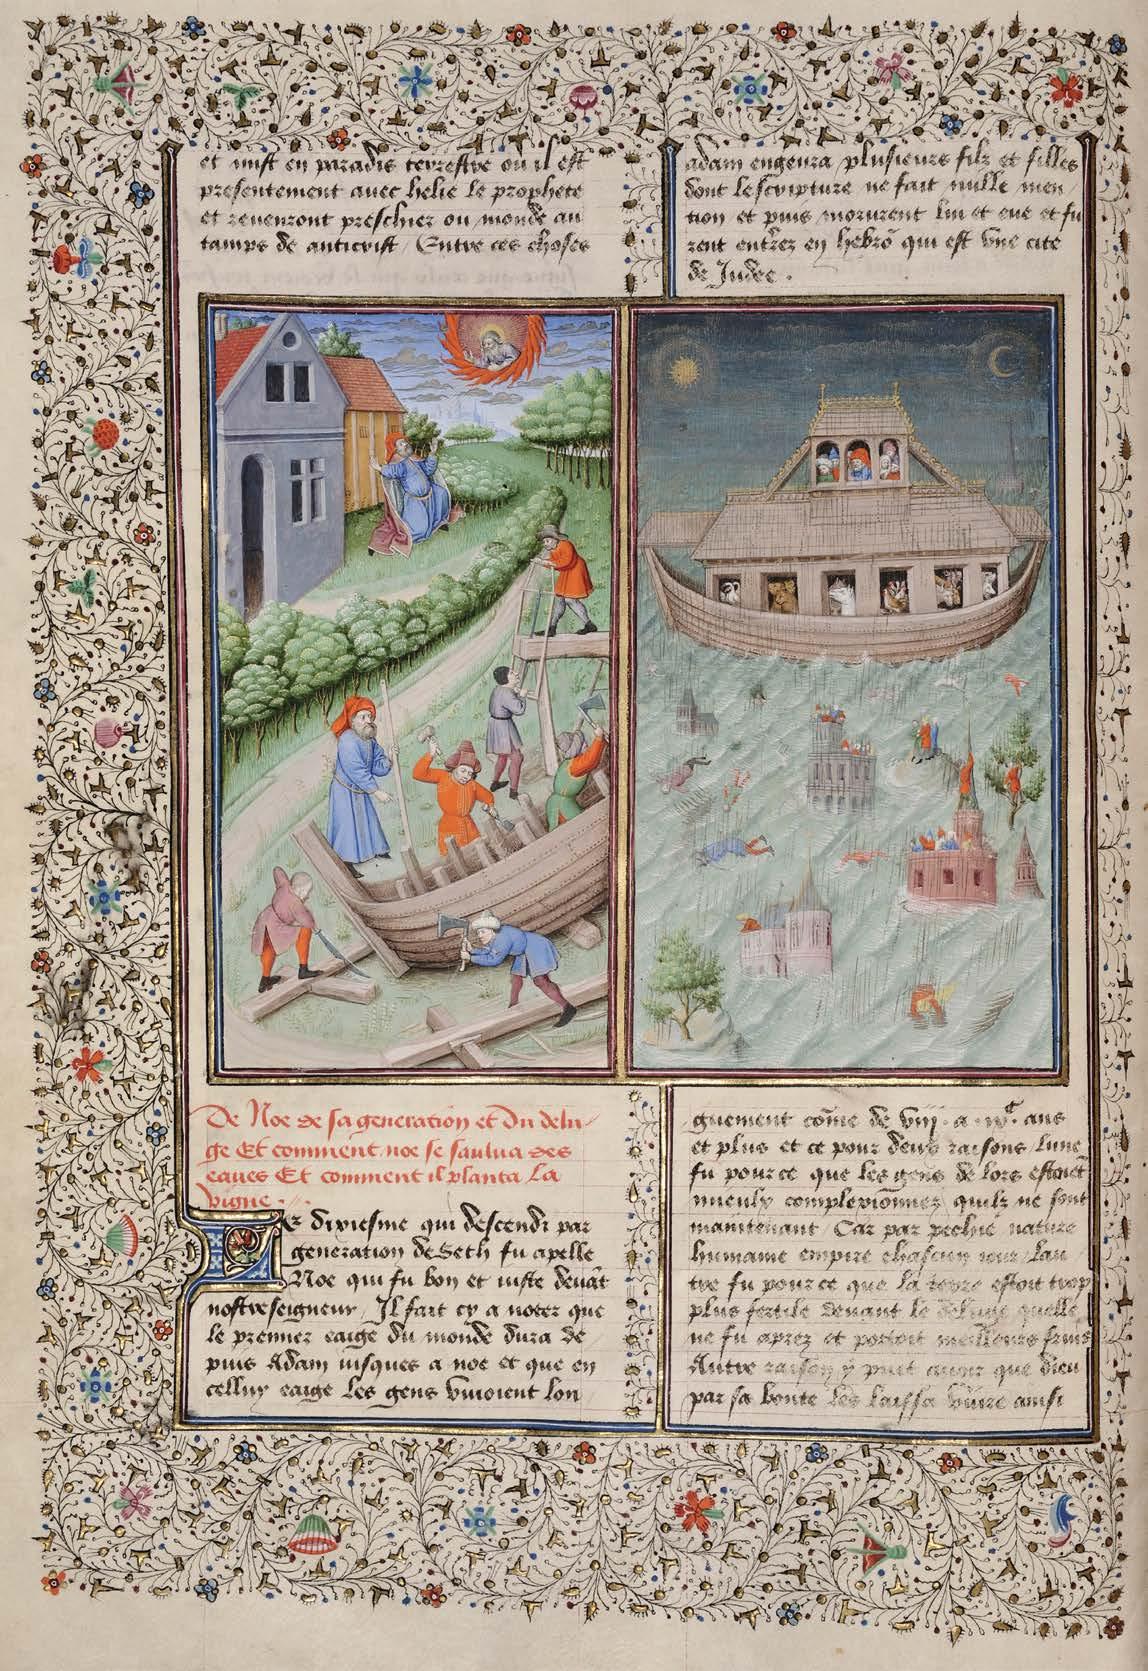 et mist en paradis terrestre ou il est
presentement avec helie le prophete
et revenront preschier ou monde au
tamps de anticrist / Entre ces choses
adam engenra plusieurs filz et filles
dont lescripture ne fait nulle men /
tion et puis morurent lui et eve et fu
rent entrez en hebrõ qui est vne cite
de Judee .
De Noe de sa generatiõn et du delu /
ge Et comment noe se saulua des
eaues Et comment il planta la
vigne .
Le dixiesme qui descendi par
generation de Seth fu apelle
Noe qui fu bon et iuste deuãt
nostreseigneur / Il fait cy a noter que
le premier eaige du monde dura de
puis Adam iusques a noe et que en
celluy eaige les gens viuoient lon /
guement cõme de viij . a . ixᶜ ans
et plus et ce pour deux raisons / lune
fu pource que les gens de lors estoiẽt
mieulx complexiõnnez quilz ne sont
maintenant / Car par pechie nature
humaine empire chascun iour / lau /
tre fu pource que la terre estoit trop
plus fertile deuant le deluge quelle
ne fu aprez et portoit meilleurs fruis
Autre raison y puet auoir que dieu
par sa bonte les laissa viure ainsi